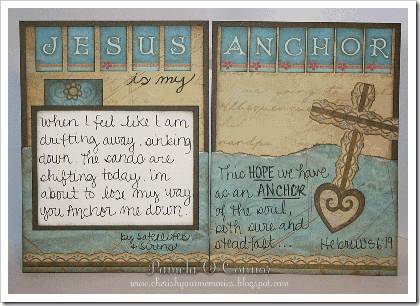 JESUS
is my
when I feel like I am
drifting away, sinking
down. The sands are
shifting today. I'm
about to lose my way
you Anchor me down.
by Satellites
& Sirens
ANCHOR
This HOPE we have
as an ANCHOR
of the soul,
both sure and
steadfast...
Hebrews 6:19
Pamela O'Connor
www.cherishyourmemories.blogspot.com